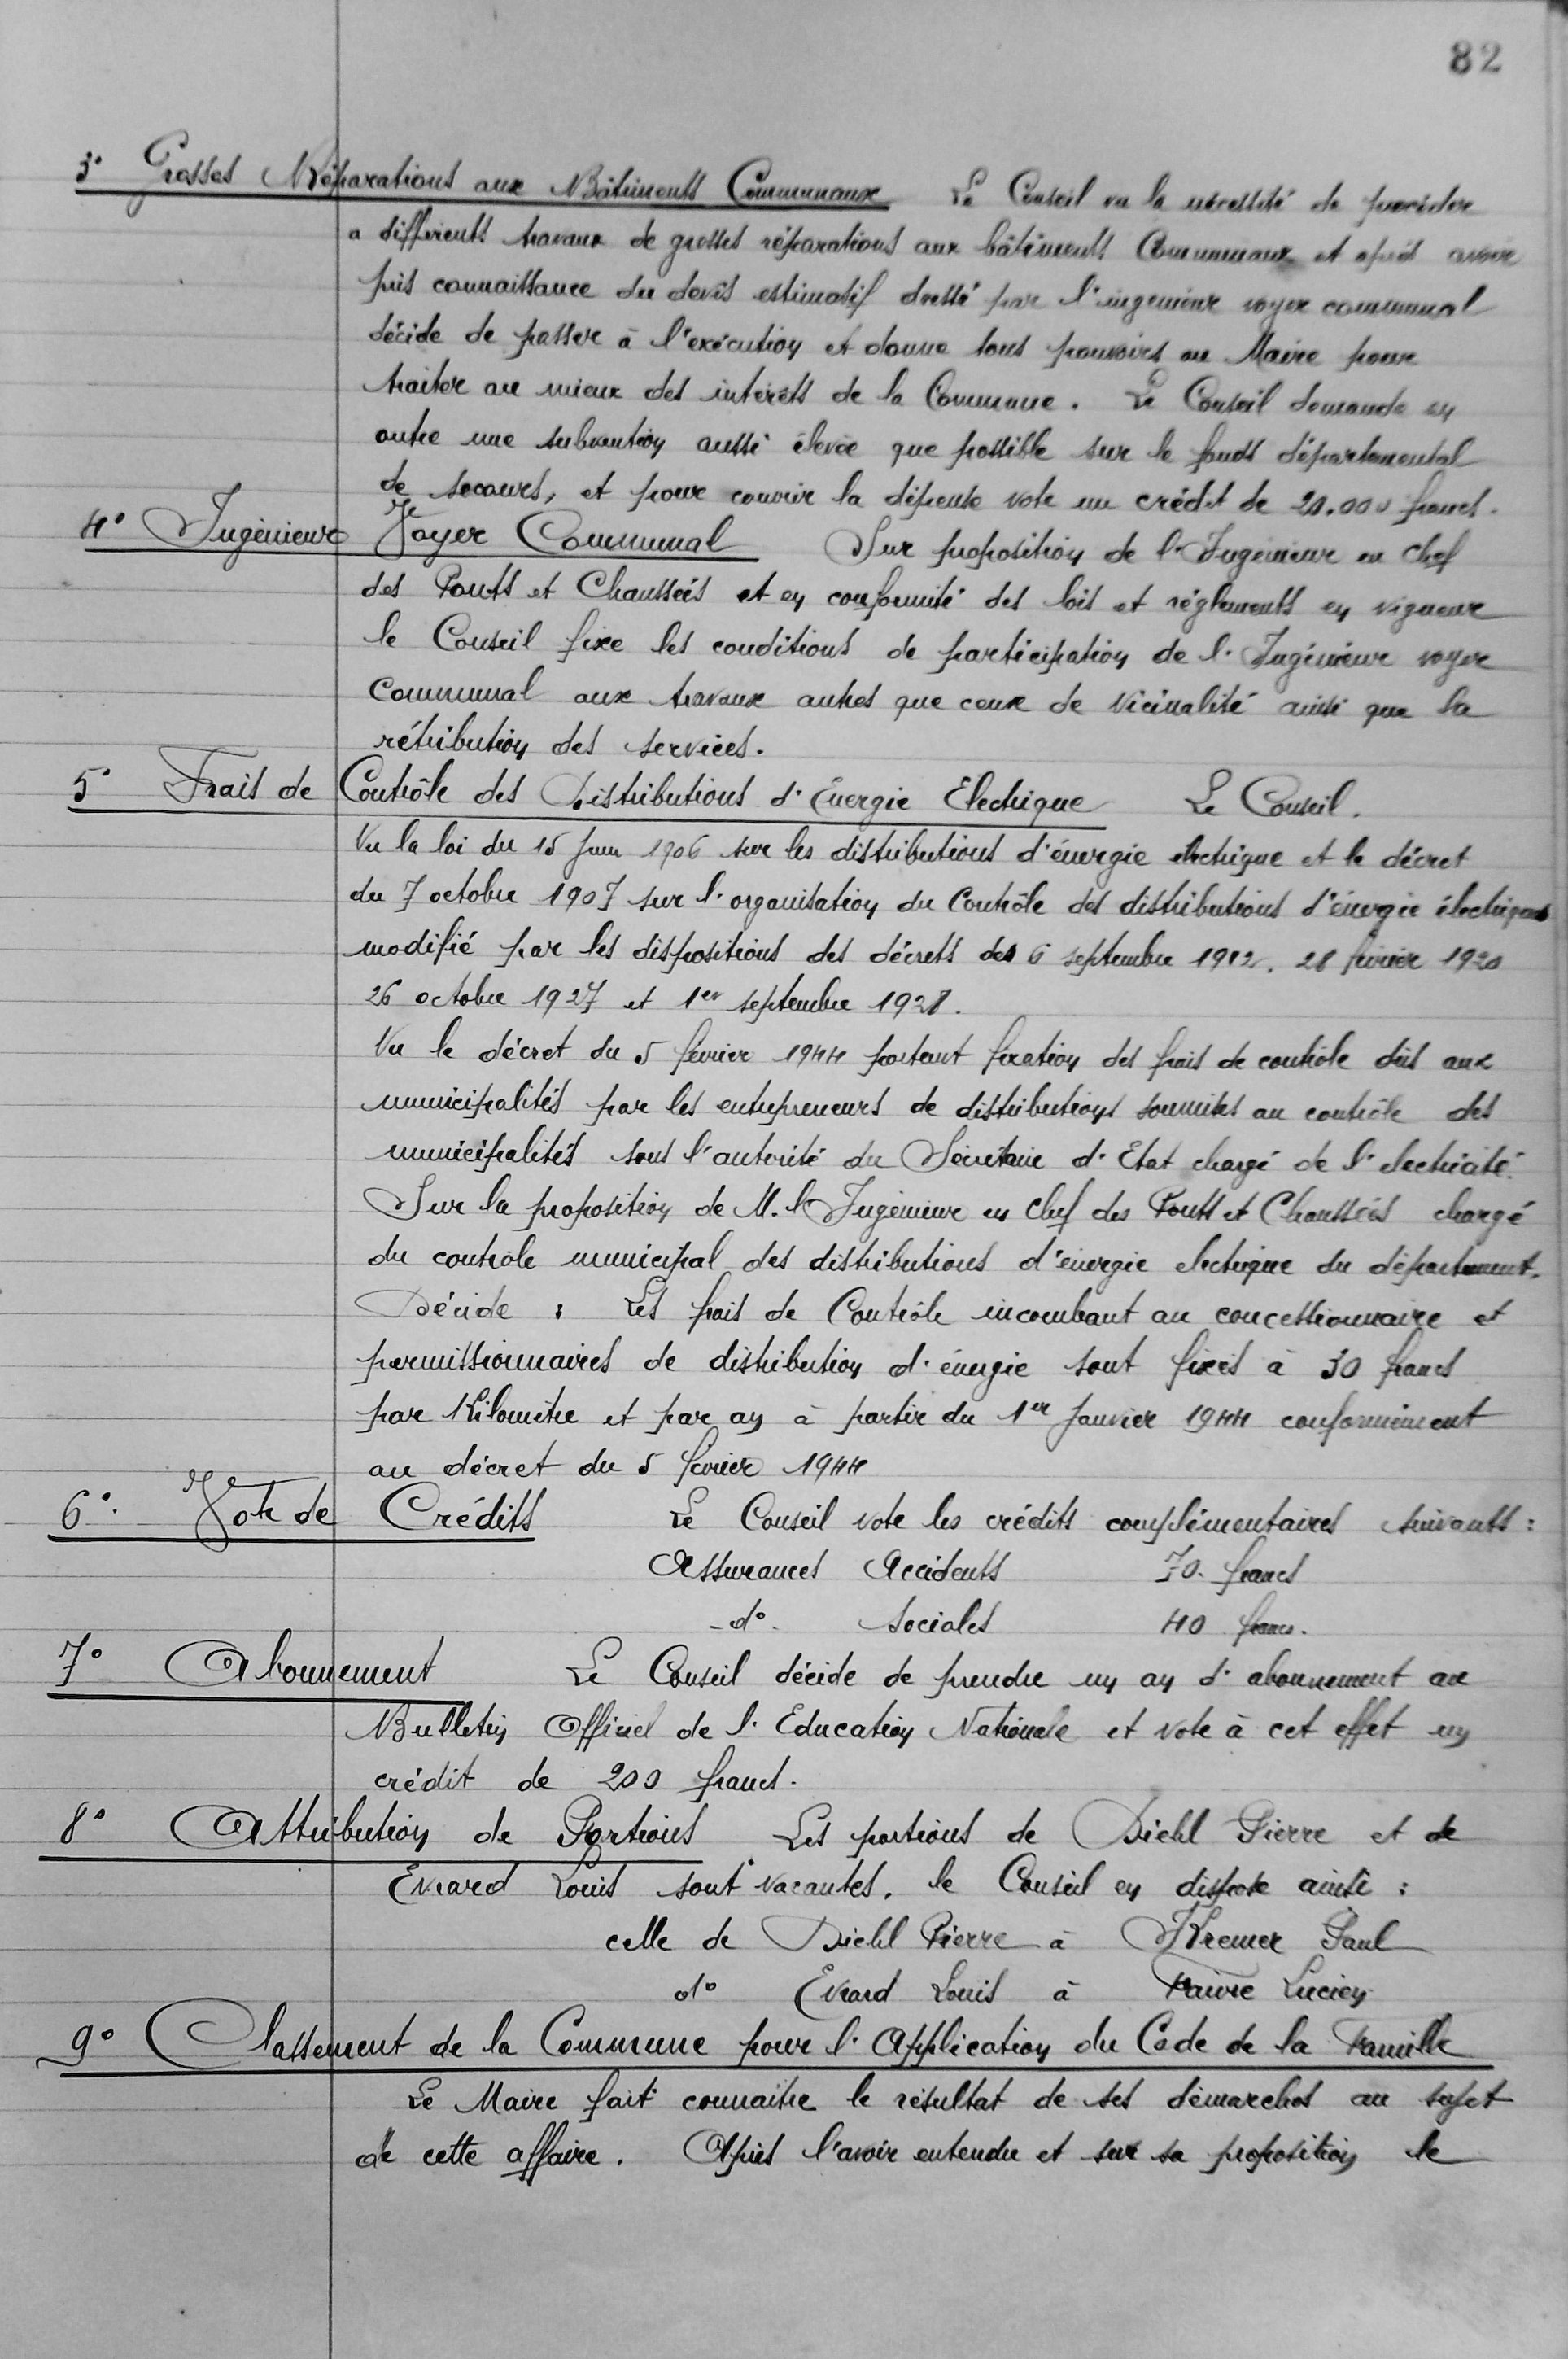 82
3° Grosses Réparations aux Bâtiments Communaux Le Conseil vu la nécessité de procéder
a différents travaux de grosses réparations aux bâtiments Communaux et après avoir
pris connaissance du devis estimatif dressé par l'ingenieur voyer communal
décide de passer à l'exécution et donne tous pouvoirs au Maire pour
traiter au mieux des intérêts de la Commune. Le Conseil demande en
outre une subvention aussi élevée que possible sur le fonds départemental
de secours, et pour couvrir la dépense vote un crédit de 20.000 francs.
4° Ingénieur Voyer Communal Sur proposition de l'Ingénieur en chef
des Ponts et Chaussées et en conformité des lois et réglements en vigueur
le Conseil fixe les conditions de participation de l'Ingénieur voyer
Communal aux travaux autres que ceux de Vicinalité ainsi que la
rétribution des services.
5° Frais de Contrôle des Distributions d'Énergie Electrique Le Conseil.
Vu la loi du 15 Juin 1906 sur les distributions d'énergie electrique et le décret
du 7 octobre 1907 sur l'organisation du Contrôle des distributions d'énergie électriques
modifié par les dispositions des décrets des 6 septembre 1912. 28 février 1920
26 octobre 1927 et 1er septembre 1928.
Vu le décret du 5 février 1944 portant fixation des frais de contrôle dûs aux
municipalités par les entrepreneurs de distributions soumises au contrôle des
municipalités sous l'autorité du Sécrétaire d'Etat chargé de l'electricité.
Sur la proposition de M. l'Ingénieur en Chef des Ponts et Chaussées chargé
du controle municipal des distributions d'énergie electrique du département.
Décide : Les frais de Contrôle incombant au concessionnaire et
permissionnaires de distribution d'énergie sont fixés à 30 francs
par Kilomètre et par an à partir du 1er Janvier 1944 conformément
au décret du 5 février 1944
6°. Vote de Crédits Le Conseil vote les crédits complémentaires suivants :
Assurances Accidents 70. francs
-d°- Sociales 40 francs.
7° Abonnement Le Conseil décide de prendre un an d'abonnement au
Bulletin Officiel de l'Education Nationale et vote à cet effet un
crédit de 200 francs.
8° Attribution de Portions Les portions de Diehl Pierre et de
Evrard Louis sont vacantes. le Conseil en dispose ainsi :
celle de Diehl Pierre à Kremer Paul
d° Evrard Louis à Faivre Lucien
9° Classement de la Commune pour l'Application du Code de la Famille
Le Maire fait connaitre le résultat de ses démarches au sujet
de cette affaire. Après l'avoir entendu et sur sa proposition le